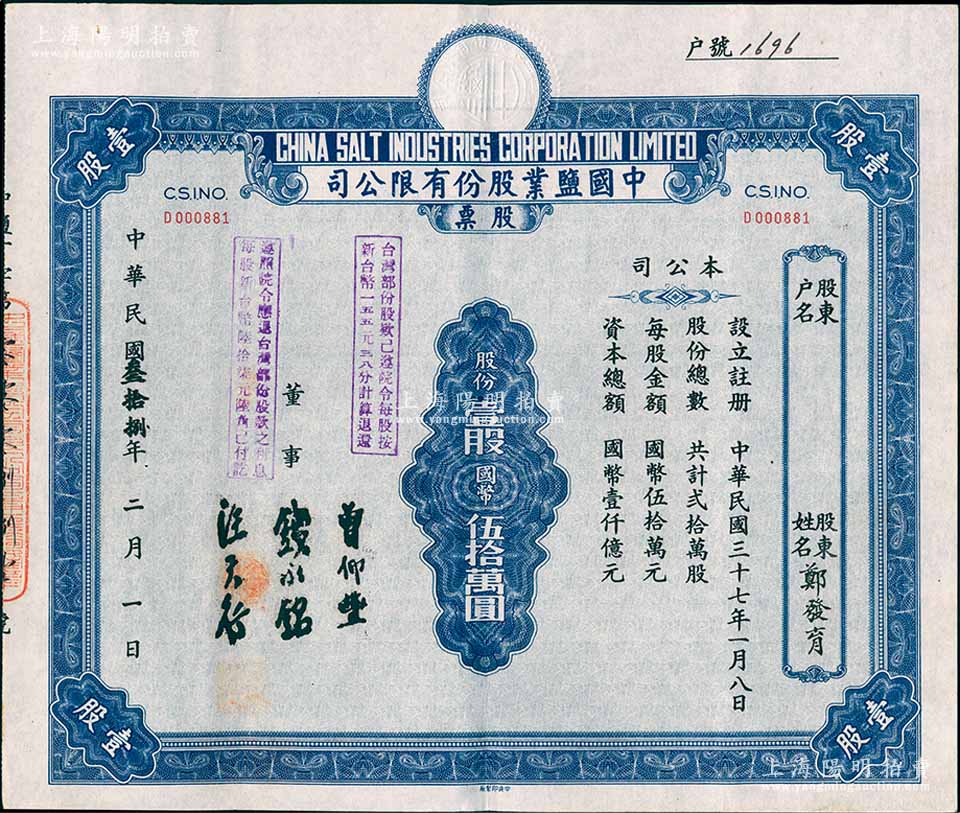 上海陽明拍賣
www.yangmingauction.com
户號 1696
壹股
壹股
CHINA SALT INDUSTRIES CORPORATION LIMITED
司公限有份股業鹽國中
票股
C.S.I.NO.
D000881
C.S.I.NO.
D000881
股東户名
股東姓名 鄭發育
司公本
設立註册 中華民國三十七年一月八日
股份總數 共計弍拾萬股
每股金額 國幣伍拾萬元
資本總額 國幣壹仟億元
股份壹股國幣伍拾萬圓
台灣部份股數已遵院令每股按
新台幣一五五元三八分計算退還
遵照院令應退台灣部份股款之利息
每股新台幣陸拾柒元陸角已付訖
董事
曾仰豐
錢永銘
中華民國叁拾捌年二月一日
上海陽明拍賣
www.yangmingauction.com
壹股
壹股
上海陽明拍賣
www.yangmingauction.com